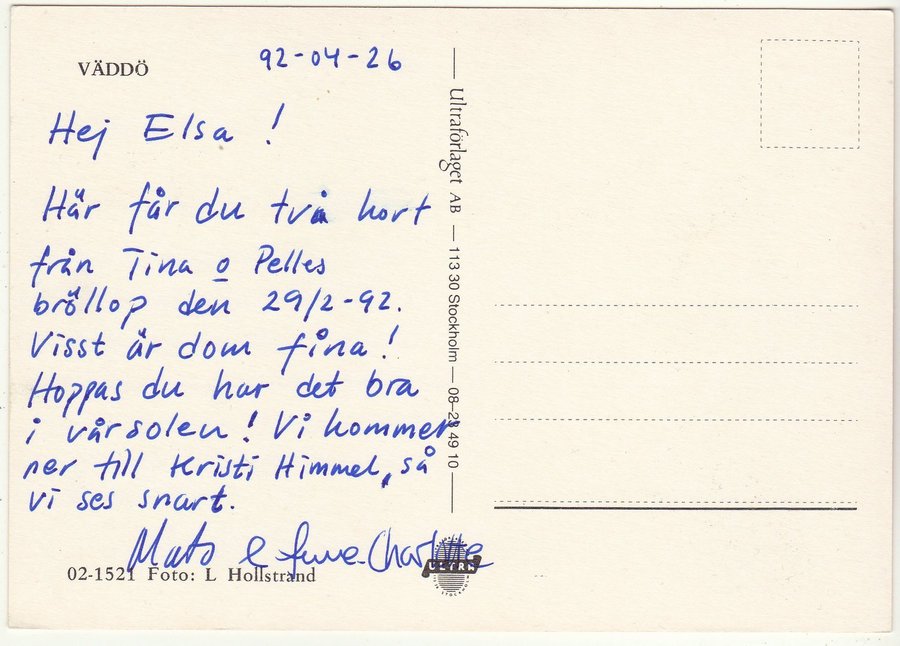 VÄDDÖ
92-04-26
Hej Elsa!
Här får du två kort
från Tina o Pelles
bröllop den 29/2-92.
Visst är dom fina!
Hoppas du har det bra
i vårsolen! Vi kommer
ner till Kristi Himmel, så
vi ses snart.
Mats & Anne-Charlotte
02-1521 Foto: L Hollstrand
Ultraförlaget AB — 113 30 Stockholm — 08-23 49 10
ULTRA